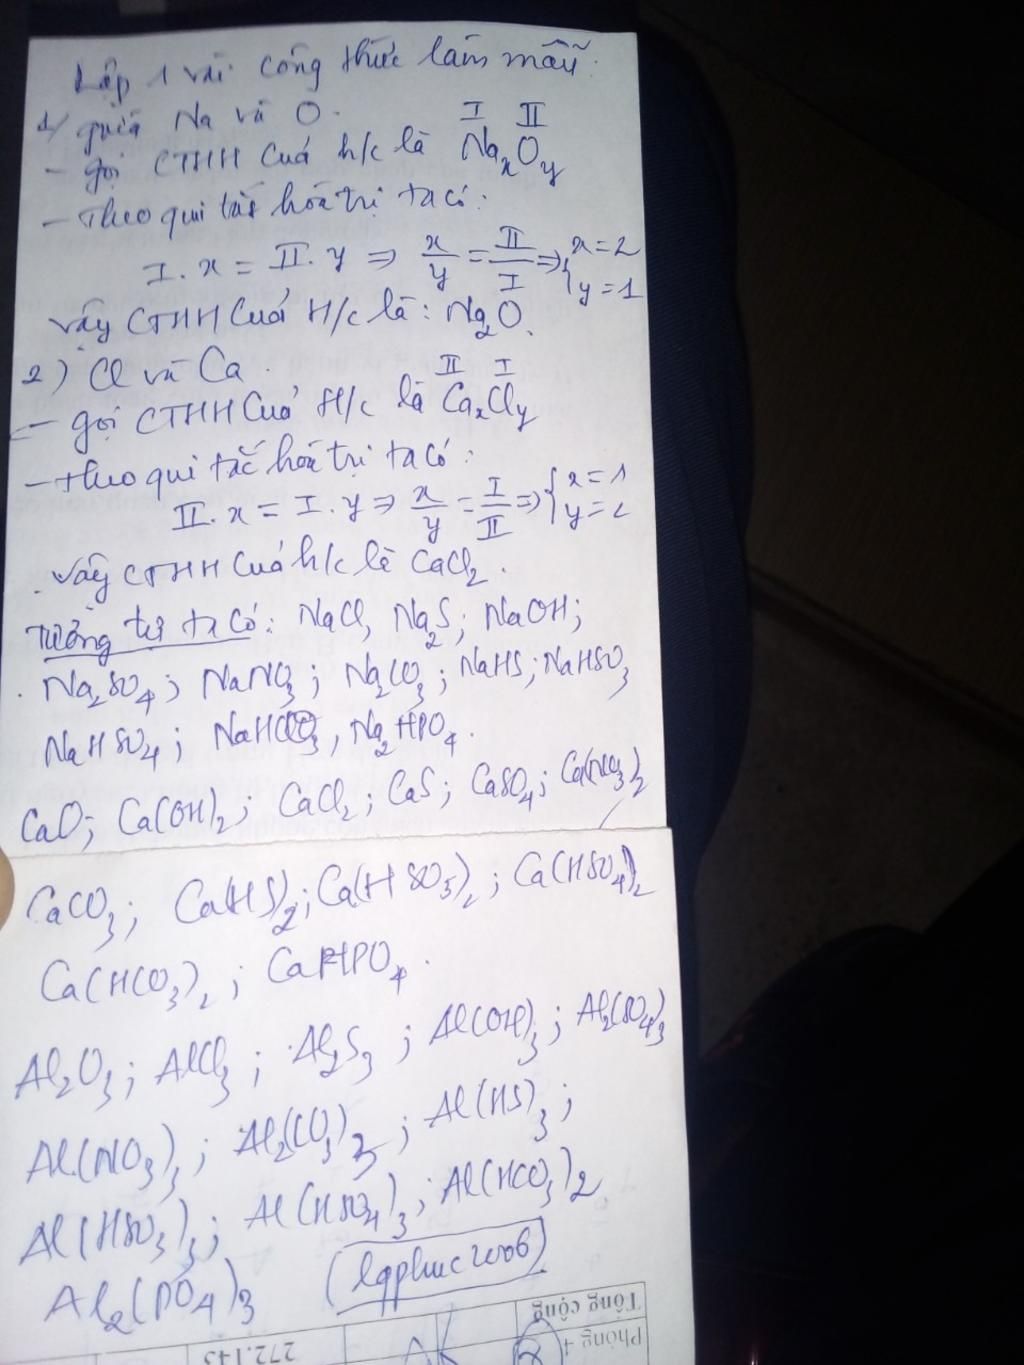 Lập 1 vài công thức làm mẫu.
1/ giữa Na và O.
- gọi CTHH của h/c là NaxOy
I II
- Theo qui tắc hóa trị ta có:
I. x = II. y => x/y = II/I => { x = 2
y = 1
Vậy CTHH của H/c là: Na2O.
2) Cl và Ca.
II I
- gọi CTHH của H/c là CaxCly
- Theo qui tắc hóa trị ta có:
II. x = I. y => x/y = I/II => { x = 1
y = 2
Vậy CTHH của h/c là CaCl2.
Tương tự ta có: NaCl, Na2S; NaOH;
Na2SO4; NaNO3; Na2CO3; NaHS; NaHSO3
NaHSO4; NaHCO3, Na2HPO4.
CaO; Ca(OH)2; CaCl2; CaS; CaSO4; Ca(NO3)2
CaCO3; Ca(HS)2; Ca(HSO3)2; Ca(HSO4)2
Ca(HCO3)2; CaHPO4.
Al2O3; AlCl3; Al2S3; Al(OH)3; Al2(SO4)3
Al(NO3)3; Al2(CO3)3; Al(HS)3;
Al(HSO3)3; Al(HSO4)3; Al(HCO3)2
Al2(PO4)3 (lqphuc2006)
Tổng cộng
Phòng 4
272.143